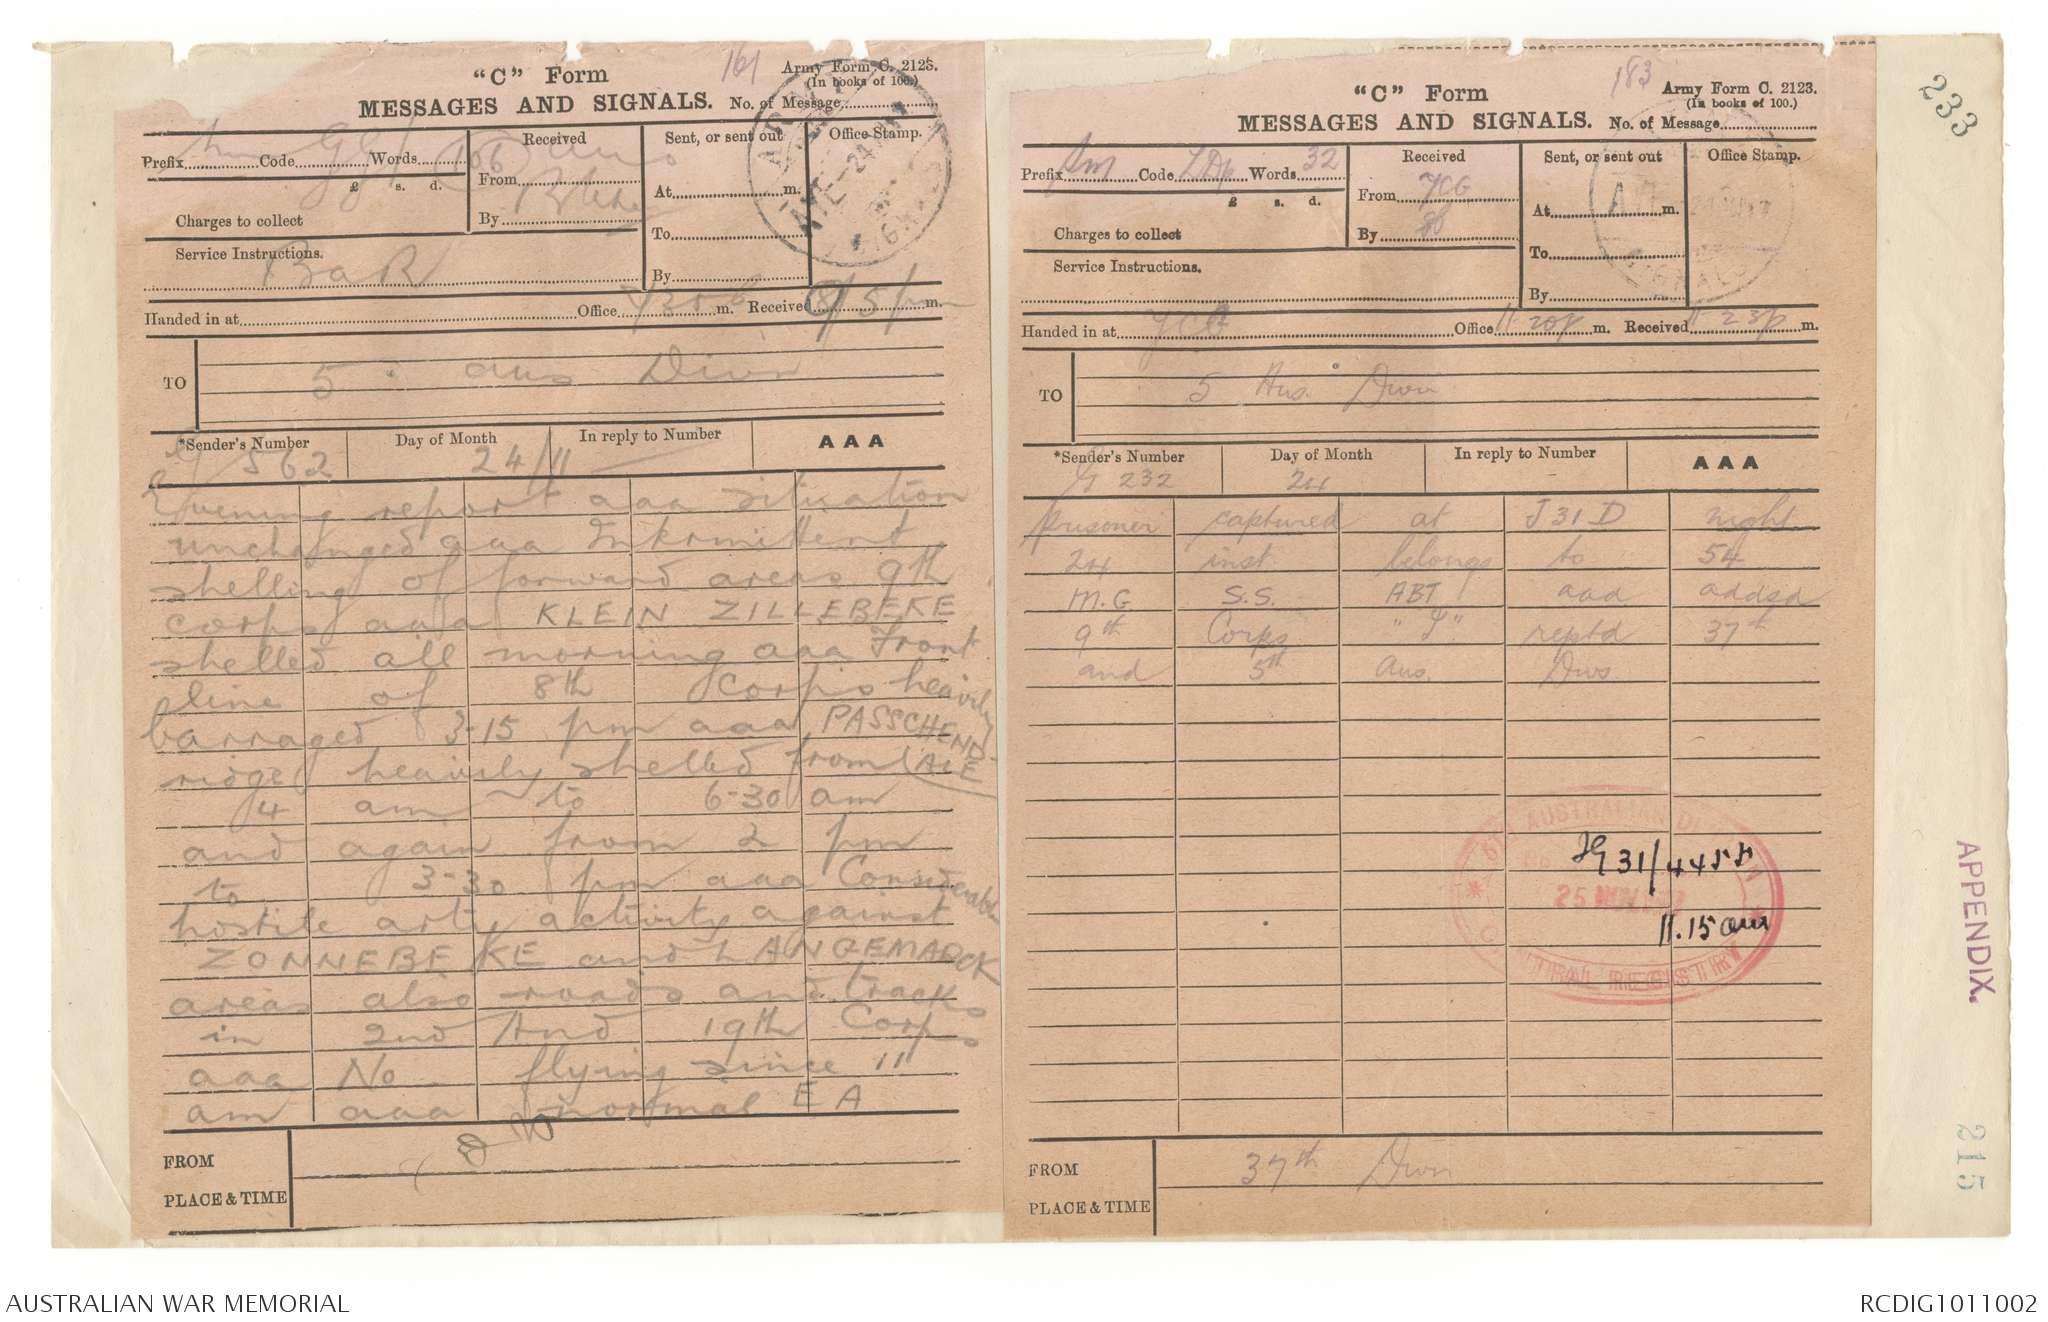 "C" Form
MESSAGES AND SIGNALS.
161
Army Form C. 2123.
(In books of 100.)
No. of Message
Prefix Code Words 106
£ s. d.
Charges to collect
Service Instructions.
BaR
Received
From Aus
By
Sent, or sent out
At m.
To
By
Office Stamp.
ARMY
24
SIGNALS
Handed in at Office 730 m. Received 8/5/pm m.
TO
5 aus Divn
*Sender's Number
Day of Month
In reply to Number
AAA
G 562
24/11
Evening report aaa situation
unchanged aaa Intermittent
shelling of forward areas 9th
corps aaa KLEIN ZILLEBEKE
shelled all morning aaa Front
line of 8th Corps heavily
barraged 3-15 pm aaa PASSCHEND-
ALE
ridge heavily shelled from
4 am to 6-30 am
and again from 2 pm
to 3-30 pm aaa Considerable
hostile arty activity against
ZONNEBEKE and LANGEMARCK
areas also roads and tracks
in 2nd And 19th Corps
aaa No flying since 11
am aaa normal E A
FROM
PLACE & TIME
"C" Form
MESSAGES AND SIGNALS.
183
Army Form C. 2123.
(In books of 100.)
No. of Message
Prefix Sm Code Words 32
£ s. d.
Charges to collect
Service Instructions.
Received
From YCG
By
Sent, or sent out
At m.
To
By
Office Stamp.
SIGNALS
Handed in at YCG Office 11 20p m. Received 11 23p m.
TO
5 Aus. Divn
*Sender's Number
Day of Month
In reply to Number
AAA
G 232
24
Prisoner captured at J31D night
24 inst. belongs to 54
M.G S.S. ABT aaa addsd
9th Corps "I" reptd 37th
and 5th Aus. Divs.
5TH AUSTRALIAN DIVISION
25 NOV. 1917
CENTRAL REGISTRY
G 31/4455
11.15 am
FROM
PLACE & TIME
37th Divn
233
APPENDIX.
215
AUSTRALIAN WAR MEMORIAL
RCDIG1011002